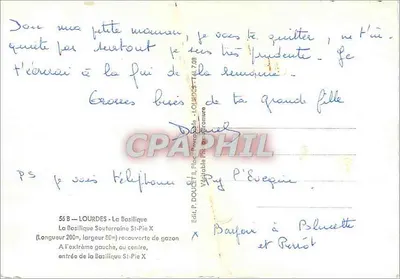 Donc ma petite maman, je vais te quitter, ne t'in-
quiète pas surtout je suis très prudente. Je
t'écrirai à la fin de la semaine.
Grosses bises de ta grande fille
CPARHIL
PS je vais téléphoner à Puy l'Evêque
x Bonjour à Bluette
et Pierrot
56 B — LOURDES - La Basilique
La Basilique Souterraine St-Pie X
(Longueur 200m, largeur 80m) recouverte de gazon
A l'extrême gauche, au centre,
entrée de la Basilique St-Pie X
Edit. P. DOUCET
LOURDES - Tél. 7.08
Véritable